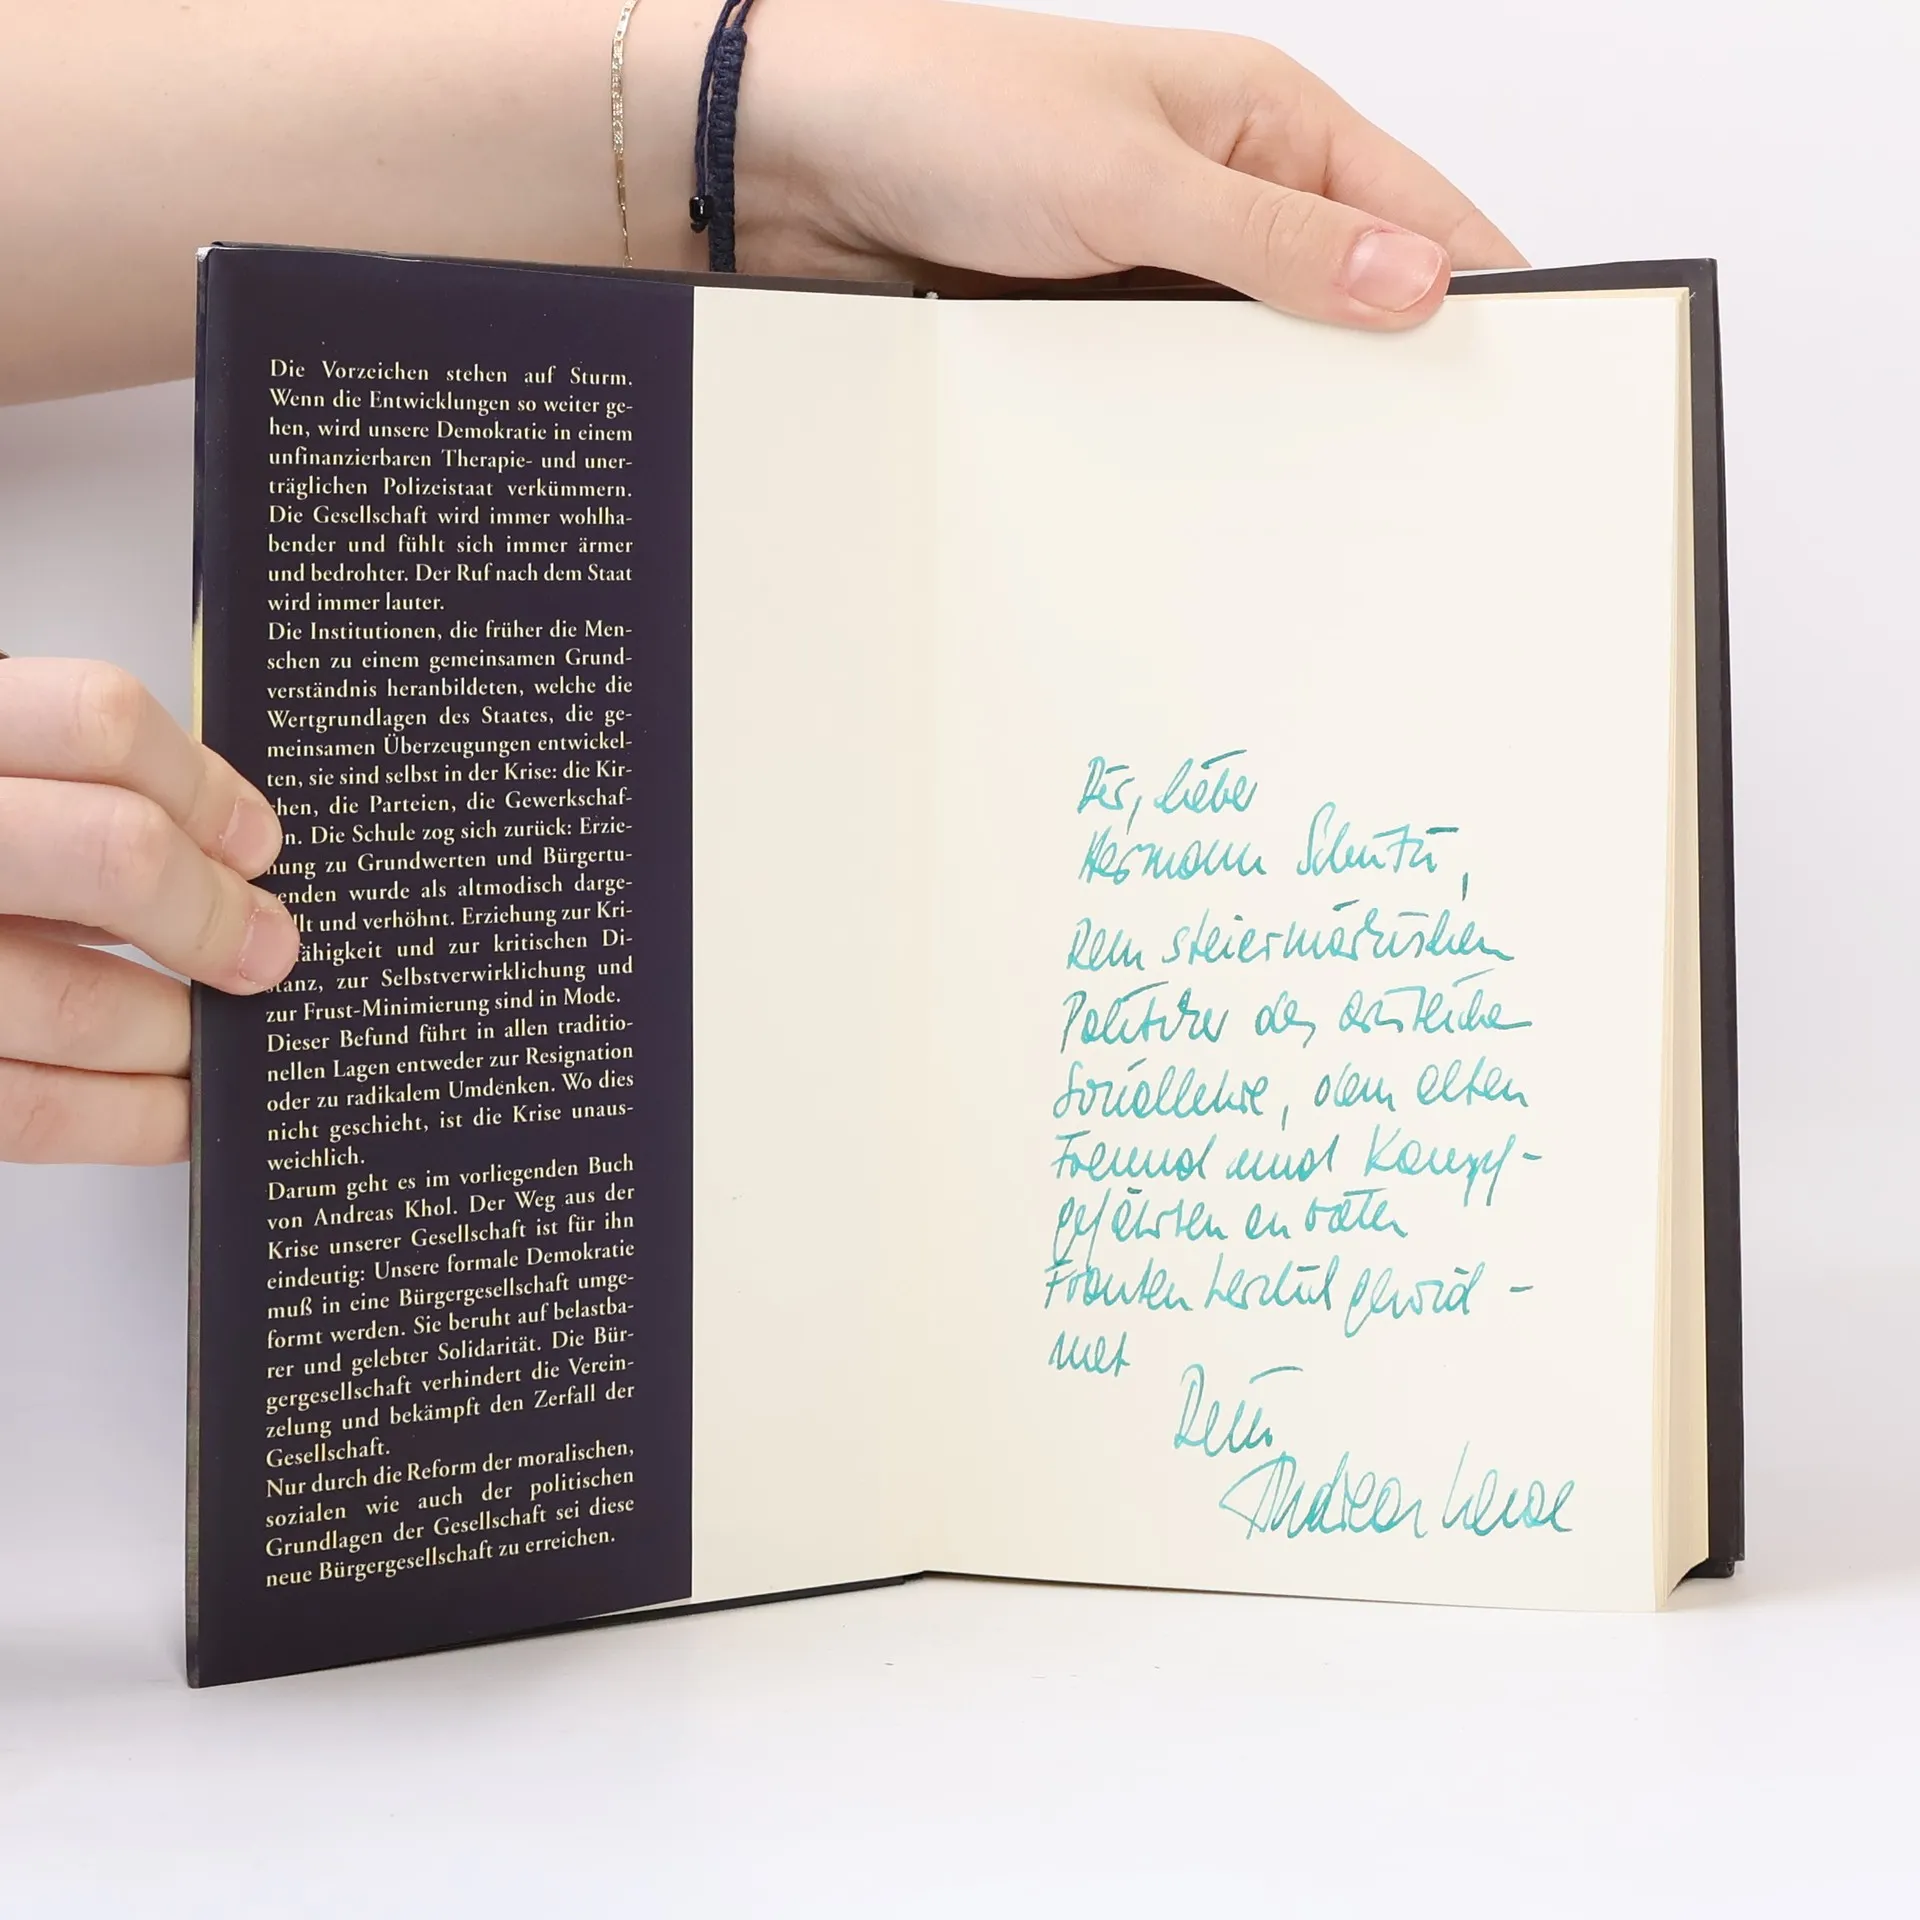 Die Vorzeichen stehen auf Sturm.
Wenn die Entwicklungen so weiter ge-
hen, wird unsere Demokratie in einem
unfinanzierbaren Therapie- und uner-
träglichen Polizeistaat verkümmern.
Die Gesellschaft wird immer wohlha-
bender und fühlt sich immer ärmer
und bedrohter. Der Ruf nach dem Staat
wird immer lauter.
Die Institutionen, die früher die Men-
schen zu einem gemeinsamen Grund-
verständnis heranbildeten, welche die
Wertgrundlagen des Staates, die ge-
meinsamen Überzeugungen entwickel-
ten, sie sind selbst in der Krise: die Kir-
hen, die Parteien, die Gewerkschaf-
n. Die Schule zog sich zurück: Erzie-
ung zu Grundwerten und Bürgertu-
enden wurde als altmodisch darge-
llt und verhöhnt. Erziehung zur Kri-
fähigkeit und zur kritischen Di-
tanz, zur Selbstverwirklichung und
zur Frust-Minimierung sind in Mode.
Dieser Befund führt in allen traditio-
nellen Lagen entweder zur Resignation
oder zu radikalem Umdenken. Wo dies
nicht geschieht, ist die Krise unaus-
weichlich.
Darum geht es im vorliegenden Buch
von Andreas Khol. Der Weg aus der
Krise unserer Gesellschaft ist für ihn
eindeutig: Unsere formale Demokratie
muß in eine Bürgergesellschaft umge-
formt werden. Sie beruht auf belastba-
rer und gelebter Solidarität. Die Bür-
gergesellschaft verhindert die Verein-
zelung und bekämpft den Zerfall der
Gesellschaft.
Nur durch die Reform der moralischen,
sozialen wie auch der politischen
Grundlagen der Gesellschaft sei diese
neue Bürgergesellschaft zu erreichen.
Dir, lieber
Hermann
dem steiermärkischen
Politiker der christlichen
Soziallehre, dem alten
Freund und Kampf-
gefährten an vielen
Fronten herzlich gewid-
met
Dein
Andreas